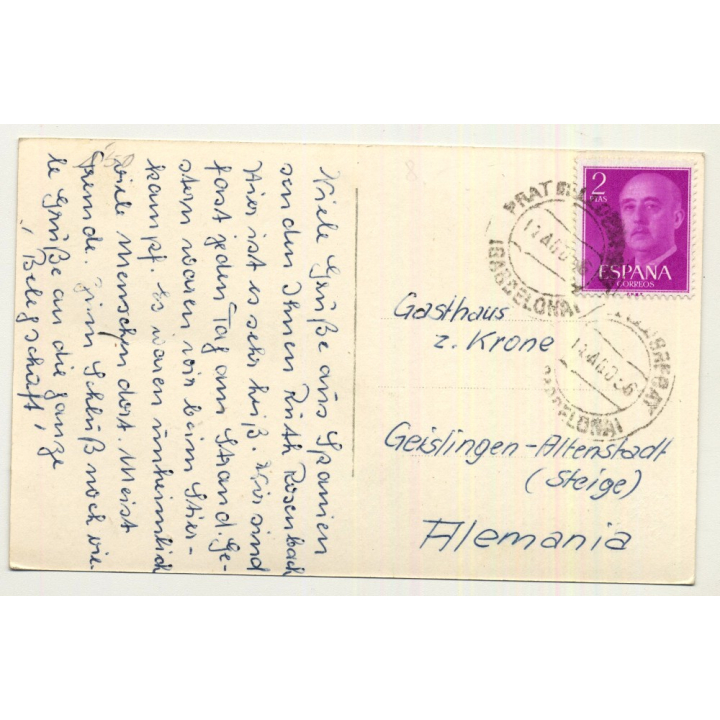 Viele Grüße aus Spanien
senden Ihnen Ruth Rosenbach
Hier ist es sehr heiß. Wir sind
fast jeden Tag am Strand. Ge-
stern waren wir beim Stier-
kampf. Es waren unheimlich
viele Menschen dort. Meist
Fremde. Zum Schluß noch vie-
le Grüße an die ganze
"Belegschaft"
2
PTAS
ESPAÑA
CORREOS
PRAT
(BARCELONA)
(BARCELONA)
Gasthaus
z. Krone
Geislingen-Altenstadt
(Steige)
Alemania